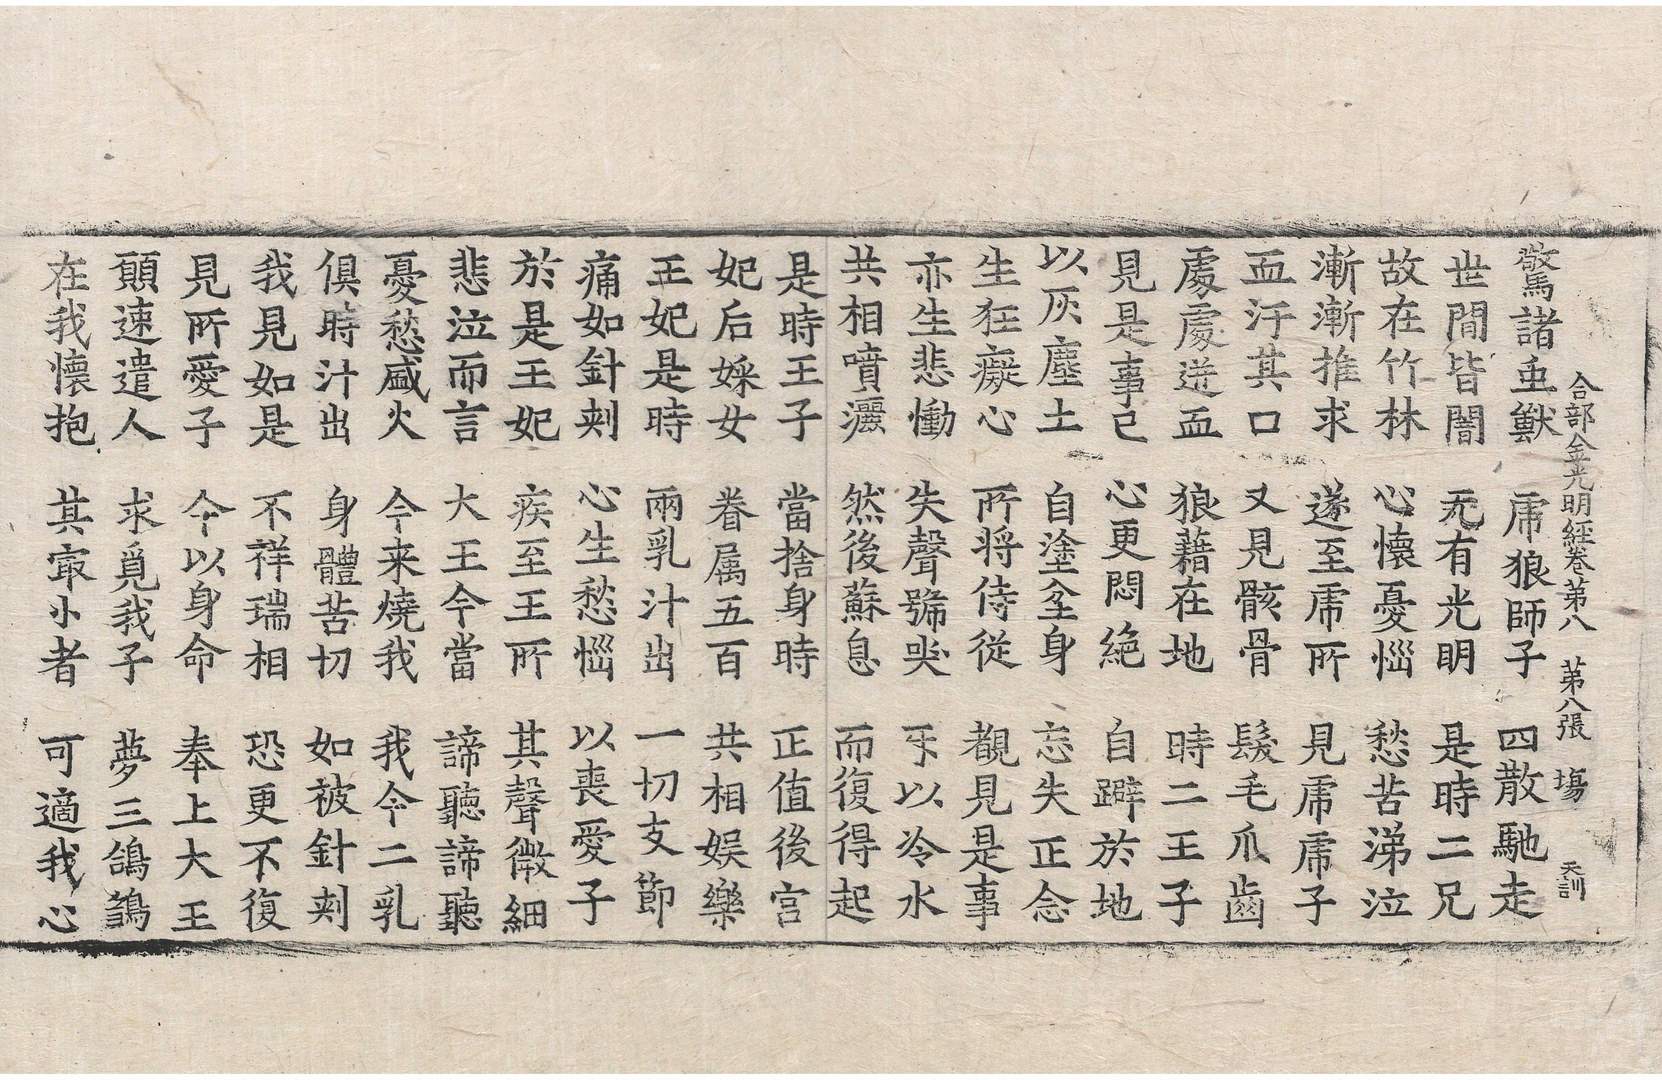 合部金光明經卷第八　第八張　塲　天訓
驚諸䖝獸　虎狼師子　四散馳走
世間皆闇　无有光明　是時二兄
故在竹林　心懷憂惱　愁苦涕泣
漸漸推求　遂至虎所　見虎虎子
血汙其口　又見骸骨　髮毛爪齒
處處迸血　狼藉在地　時二王子
見是事已　心更悶絶　自躃於地
以灰塵土　自塗坌身　忘失正念
生狂癡心　所將侍從　覩見是事
亦生悲慟　失聲號哭　㸦以冷水
共相噴灑　然後蘇息　而復得起
是時王子　當捨身時　正值後宫
妃后婇女　眷属五百　共相娱樂
王妃是時　兩乳汁出　一切支節
痛如針刺　心生愁惱　以喪愛子
於是王妃　疾至王所　其聲微細
悲泣而言　大王今當　諦聽諦聽
憂愁盛火　今来燒我　我今二乳
俱時汁出　身體苦切　如被針刺
我見如是　不祥瑞相　恐更不復
見所愛子　今以身命　奉上大王
願速遣人　求覓我子　夢三鴿鶵
在我懷抱　其㝡小者　可適我心